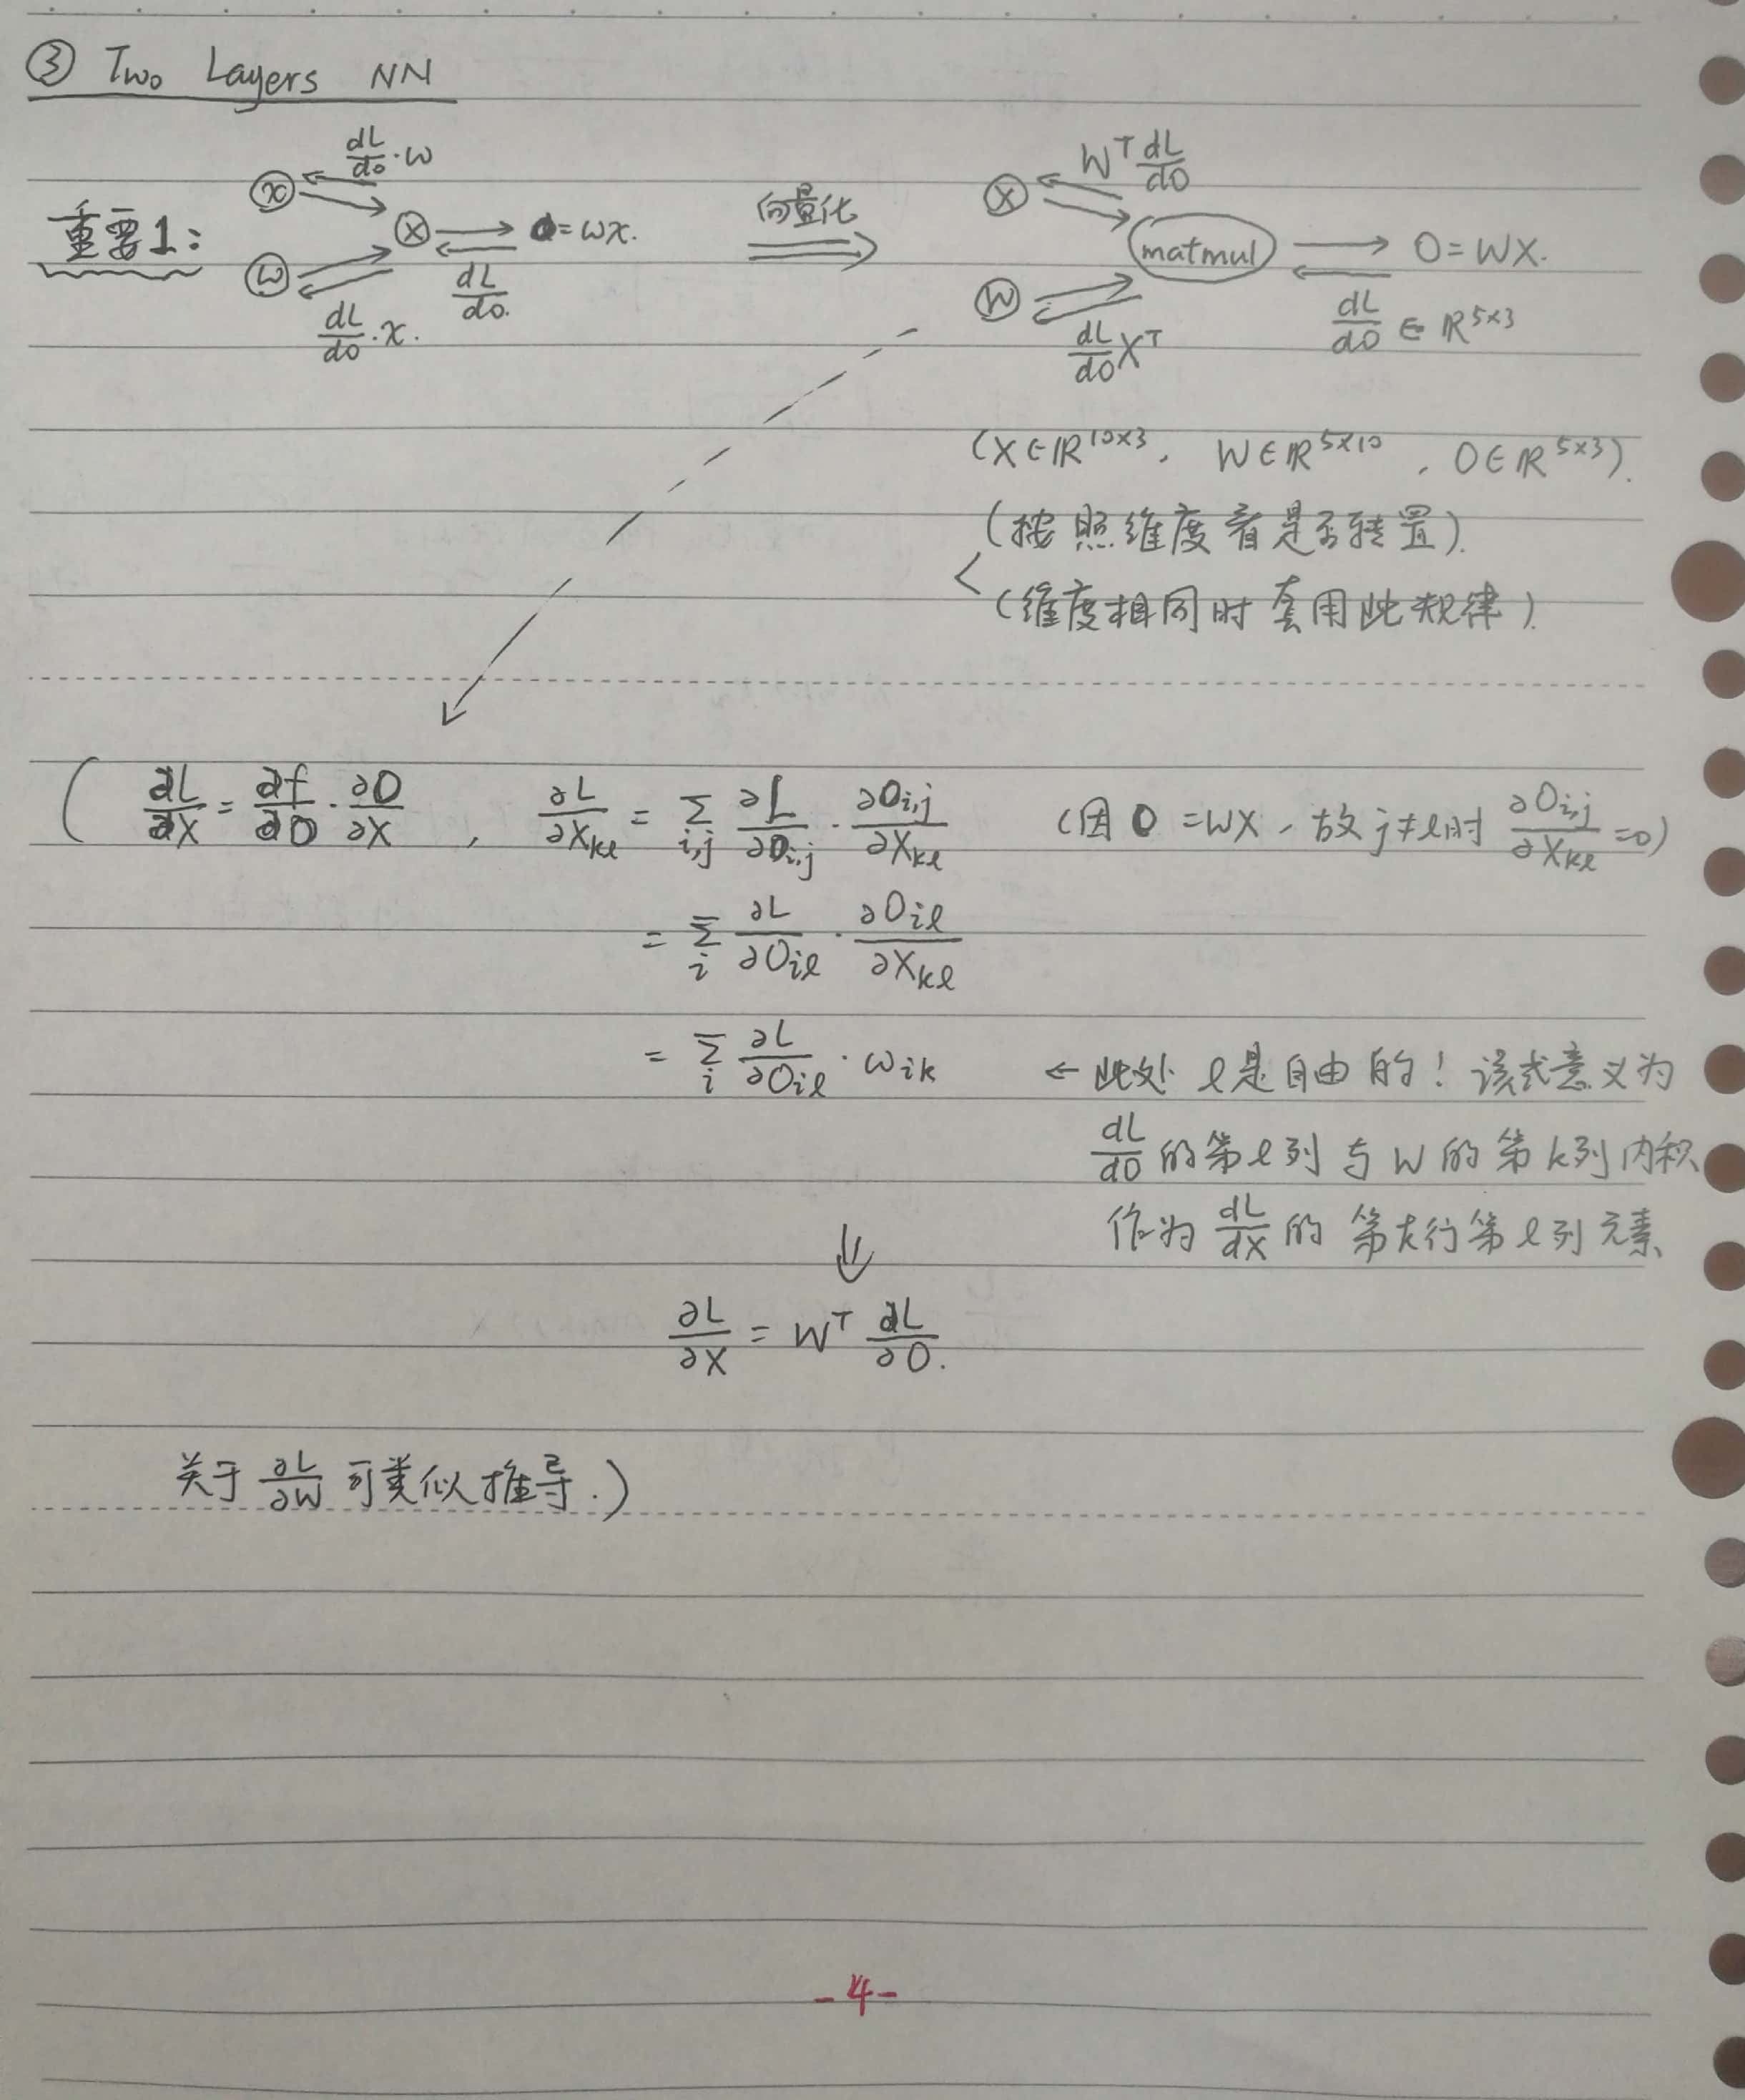 ③ Two Layers NN
重要1:
x
dL/do · w
w
dL/do · x.
×
o = wx.
dL/do.
向量化
X
W^T dL/dO
W
dL/dO X^T
matmul
O = WX.
dL/dO ∈ R^{5×3}
(X∈R^{10×3}, W∈R^{5×10}, O∈R^{5×3}).
(按照维度看是否转置).
(维度相同时套用此规律).
( ∂L/∂X = ∂f/∂O · ∂O/∂X , ∂L/∂X_{kl} = Σ_{i,j} ∂L/∂O_{i,j} · ∂O_{i,j}/∂X_{kl} (因 O = WX, 故 j≠l时 ∂O_{i,j}/∂X_{kl} = 0)
= Σ_i ∂L/∂O_{il} · ∂O_{il}/∂X_{kl}
= Σ_i ∂L/∂O_{il} · w_{ik} ← 此处 l是自由的! 该式意义为
dL/dO 的第l列与W的第k列内积
作为 dL/dX 的 第k行第l列元素
⇓
∂L/∂X = W^T ∂L/∂O.
关于 ∂L/∂W 可类似推导.)
-4-